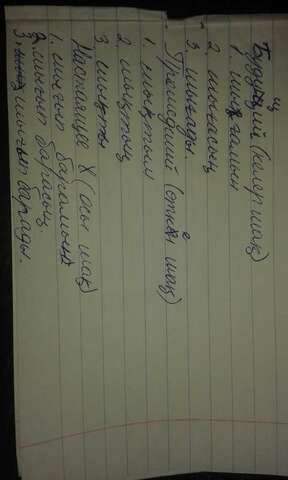 Будущий (келер шақ)
1. шығамын
2. шығасың
3. шығады.
Прошедший (өткен шақ)
1. шықтым
2. шықтың
3. шықты
Настоящее (осы шақ)
1. шығып барамын
2. шығып барасың
3. шығып барады.